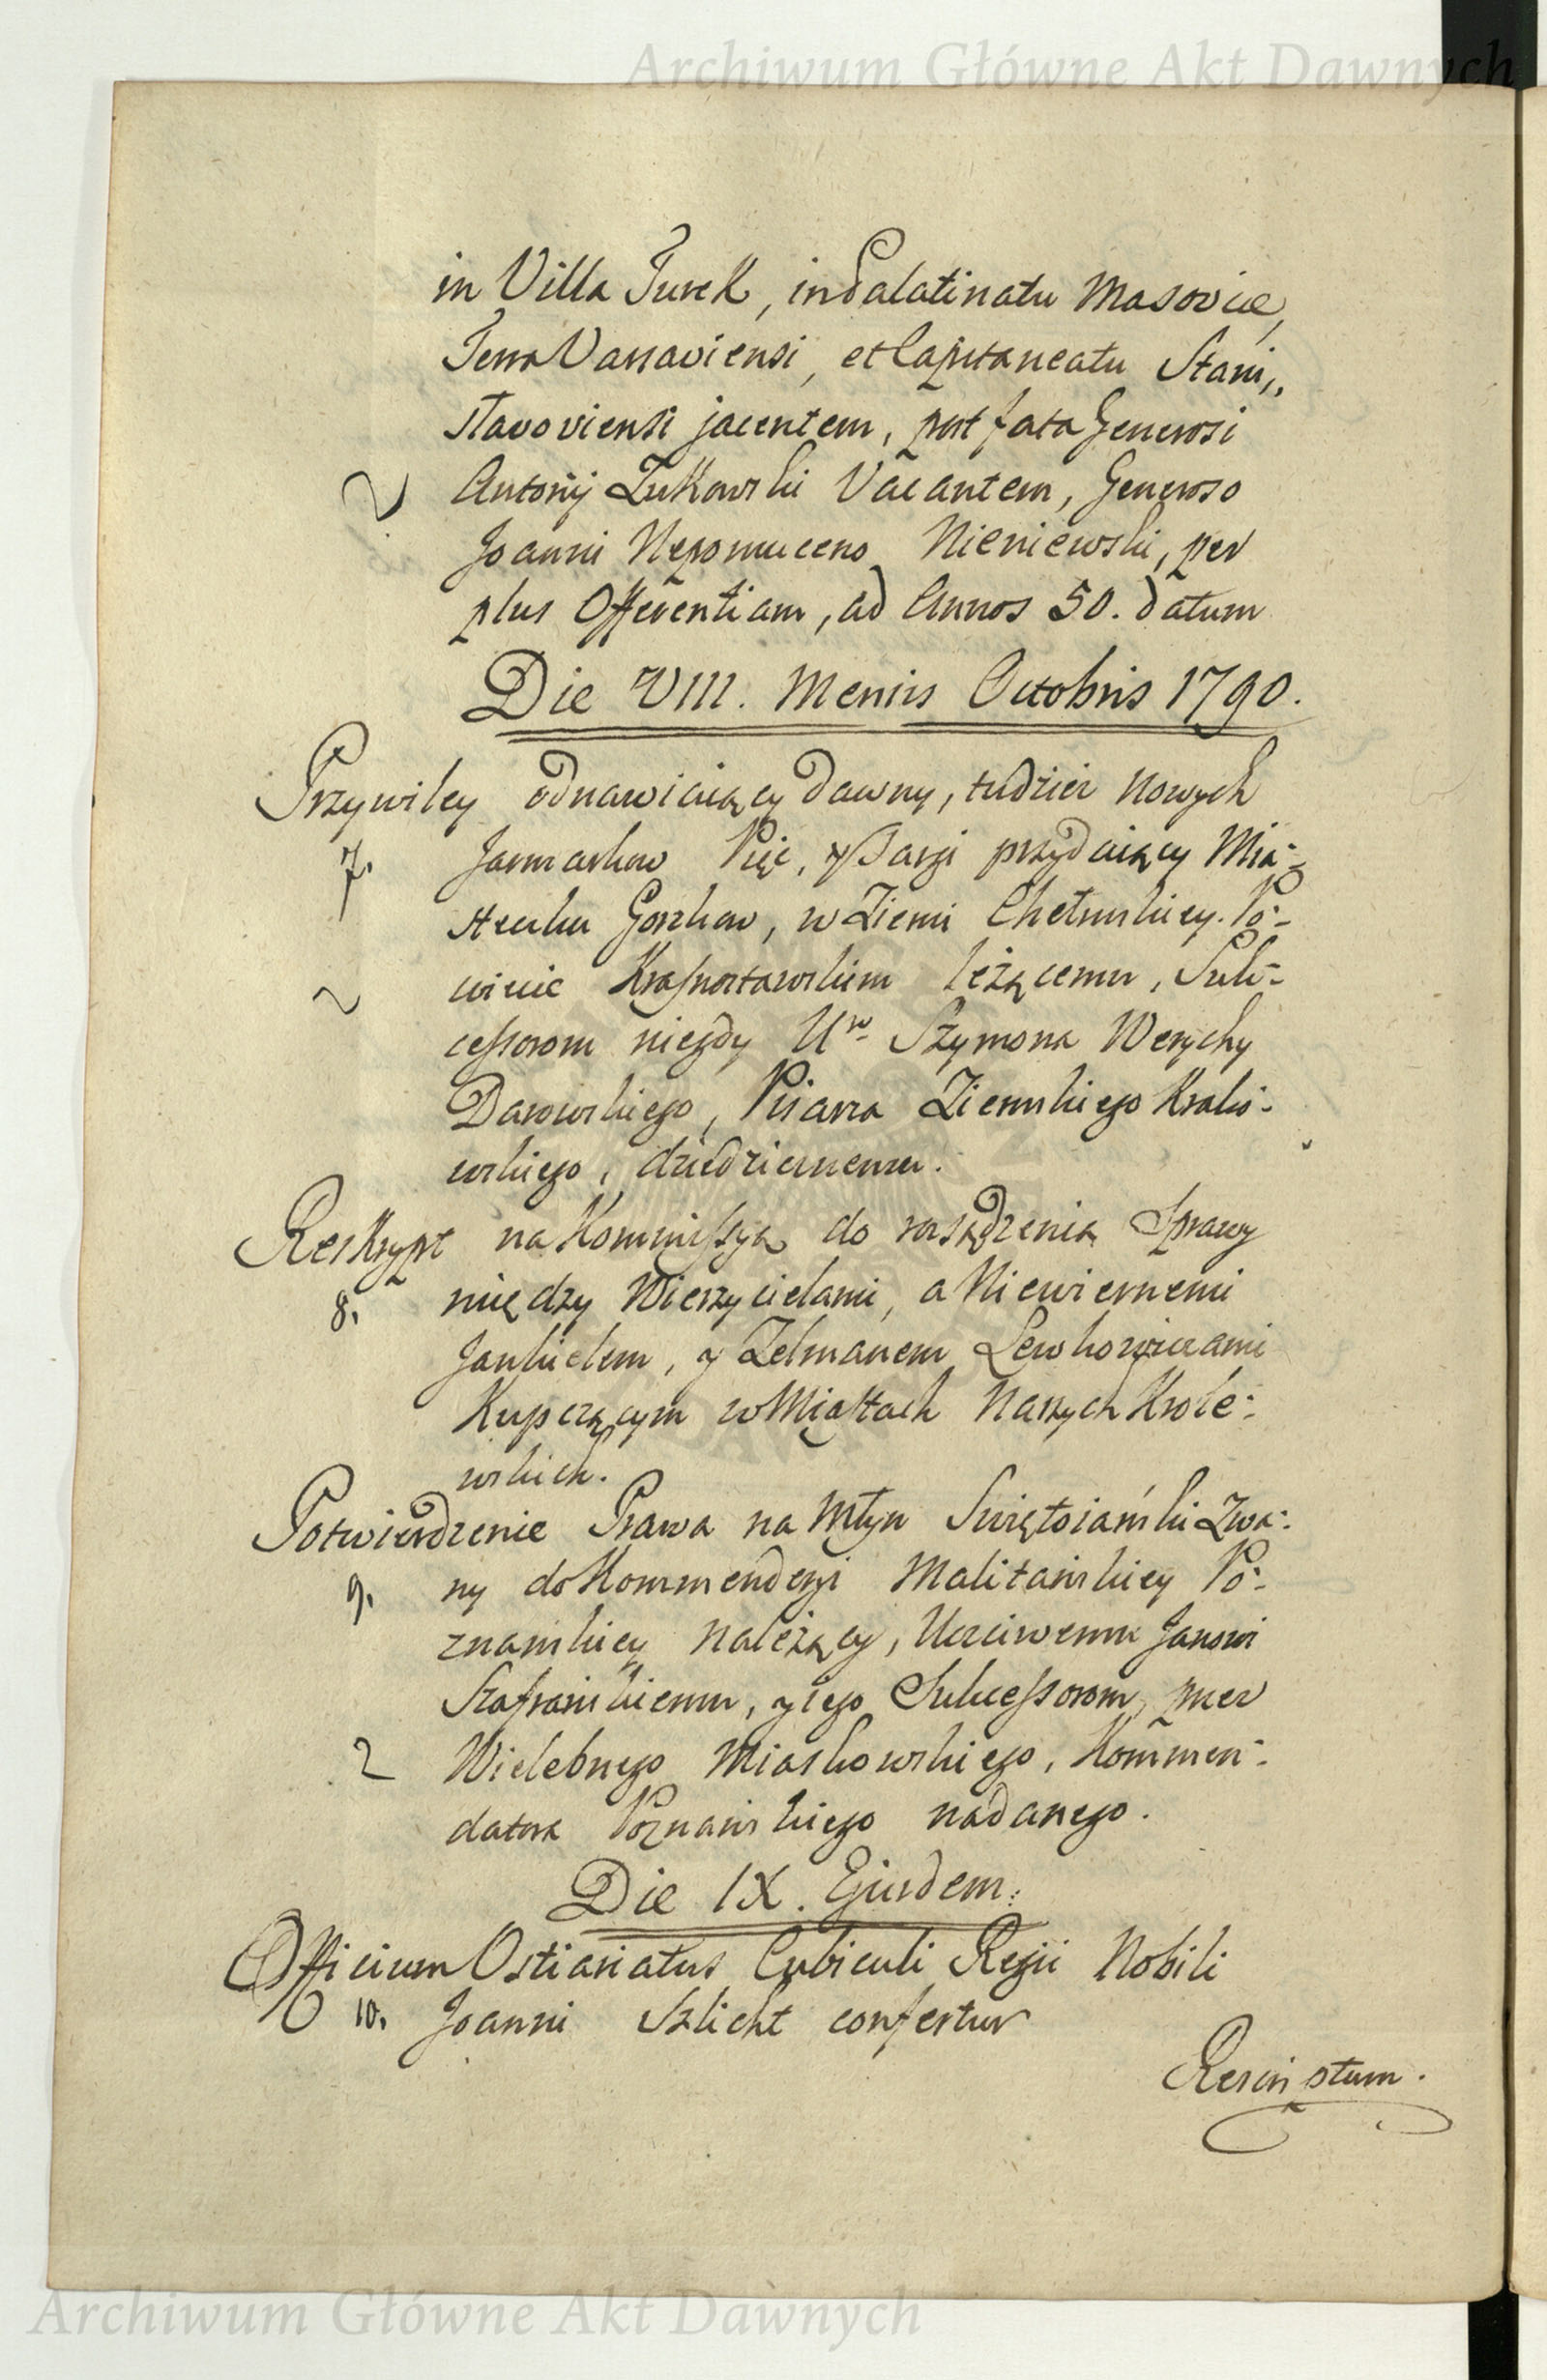 Archiwum Główne Akt Dawnych
in Villa Turek, in Palatinatu Masoviæ,
Terra Varsaviensi, et Capitaneatu Stani„
slavoviensi jacentem, post fata Generosi
Antonij Zukowski Vacantem, Generoso
Joanni Nepomuceno Nieniewski, per
plus Offerentiam, ad Annos 50. datum
Die VIII. Mensis Octobris 1790.
Przywiley odnawiaiący dawny, tudzież nowych
7. Jarmarkow Pięć, y Targi przydaiący Mia-
steczku Gorzkow, w Ziemi Chełmskiey. Po-
wiecie Krasnostawskim leżącemu, Suk-
cessorom niegdy Ur. Szymona Werychy
Darowskiego, Pisarza Ziemskiego Krako-
wskiego, dziedzicznemu.
Reskrypt na Kommissyą do rozsądzenia Sprawy
8. między Wierzycielami, a Niewiernemi
Jankielem, y Zelmanem Lewkowiczami
Kupczącym w Miastach Naszych Krole-
wskich.
Potwierdzenie Prawa na Młyn Swiętoiański Zwa-
9. ny do Kommenderyi Maltańskiey Po-
znańskiey należący, Uczciwemu Janowi
Szafrańskiemu, y iego Sukcessorom, przez
Wielebnego Miaskowskiego, Kommen-
datora Poznańskiego nadanego.
Die IX. Ejusdem:
Officium Ostiariatus Cubiculi Regii Nobili
10. Joanni Szlicht confertur
Rescriptum.
Archiwum Główne Akt Dawnych